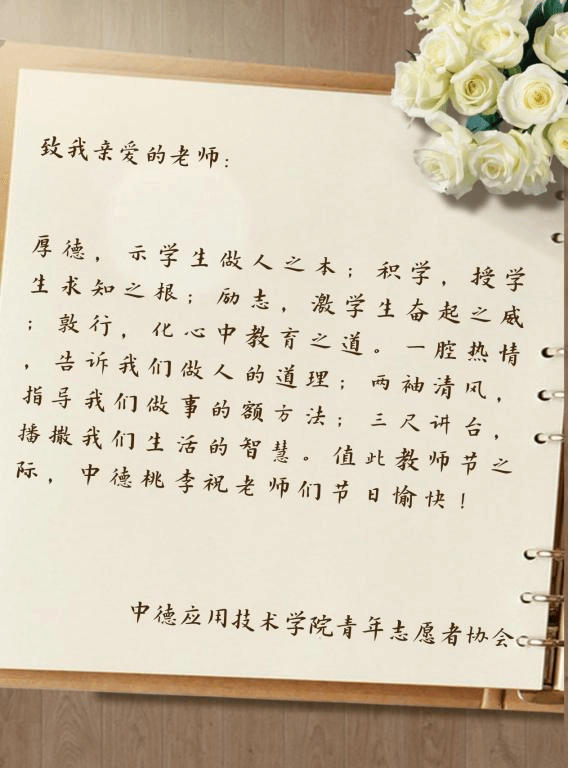 致我亲爱的老师：
厚德，示学生做人之本；积学，授学
生求知之根；励志，激学生奋起之威
；敦行，化心中教育之道。一腔热情
，告诉我们做人的道理；两袖清风，
指导我们做事的额方法；三尺讲台，
播撒我们生活的智慧。值此教师节之
际，中德桃李祝老师们节日愉快！
中德应用技术学院青年志愿者协会